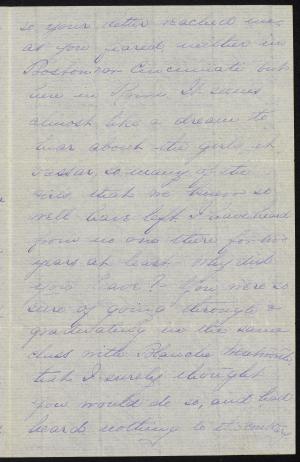 so your letter reached me
as you feared neither in
Boston nor Cincinnati but
here in Rome. It seems
almost like a dream to
hear about the girls at
Vassar, so many of the
girls that we knew so
well have left I have heard
from no one there for two
years at least Why did
you leave? You were so
sure of going through &
graduating in the same
class with Blanche
that I surely thought
you would do so, and had
heard nothing to the contrary